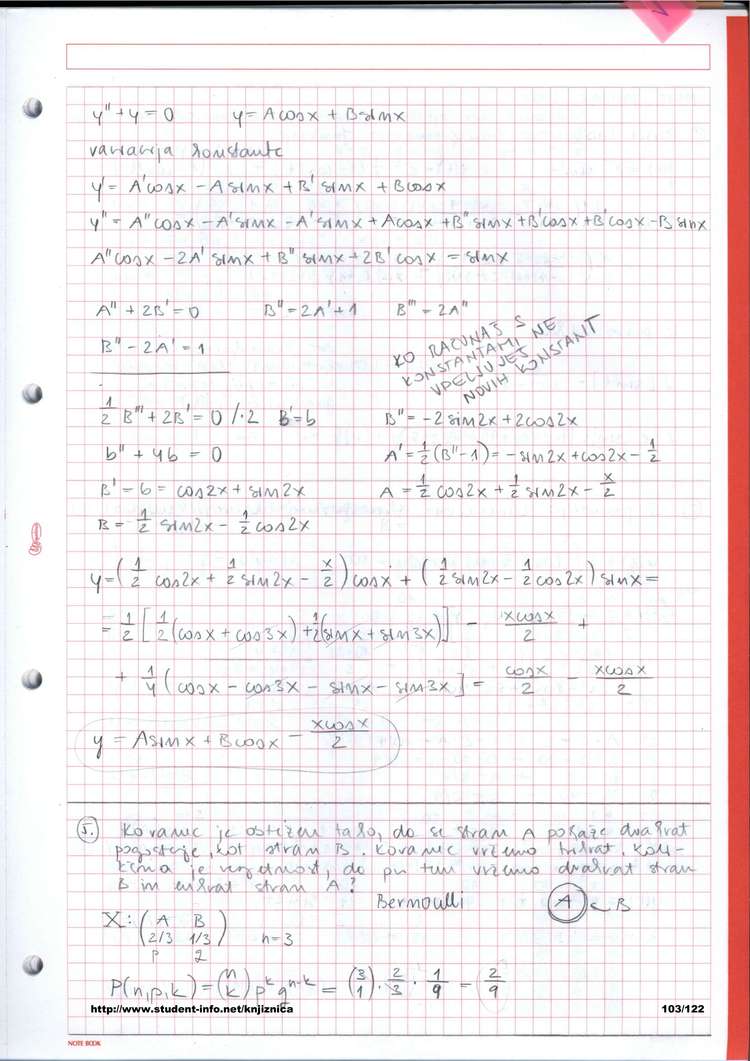 y'' + y = 0    y = A cosx + B sinx
variacija konstante
y' = A'cosx - A sinx + B' sinx + B cosx
y'' = A'' cosx - A' sinx - A' sinx + A cosx + B'' sinx + B' cosx + B' cosx - B sinx
A'' cosx - 2A' sinx + B'' sinx + 2B' cosx = sinx
A'' + 2B' = 0    B'' = 2A' + 1    B''' = 2A''
B'' - 2A' = 1
KO RAČUNAŠ S
KONSTANTAMI NE
VPELJUJEŠ
NOVIH KONSTANT
1/2 B''' + 2B' = 0 /·2    B' = b    B'' = -2 sin2x + 2cos2x
b'' + 4b = 0    A' = 1/2 (B'' - 1) = - sin2x + cos2x - 1/2
B' = b = cos2x + sin2x    A = 1/2 cos2x + 1/2 sin2x - x/2
B = 1/2 sin2x - 1/2 cos2x
y = (1/2 cos2x + 1/2 sin2x - x/2) cosx + (1/2 sin2x - 1/2 cos2x) sinx =
= 1/2 [1/2 (cosx + cos3x) + 1/2 (sinx + sin3x)] - xcosx/2 +
+ 1/4 (cosx - cos3x - sinx - sin3x] = cosx/2 - xcosx/2
y = A sinx + B cosx - xcosx/2
5. Kovanec je obtežen tako, da se stran A pokaže dvakrat
pogosteje, kot stran B. Kovanec vržemo trikrat. Koli-
kšna je verjetnost, da pri tem vržemo dvakrat stran
B in enkrat stran A?
Bernoulli    A < B
X: (A B
2/3 1/3)    n=3
p 2
P(n,p,k) = (n k) p^k q^n-k = (3 1) · 2/3 · 1/9 = 2/9
http://www.student-info.net/knjiznica    103/122
NOTE BOOK